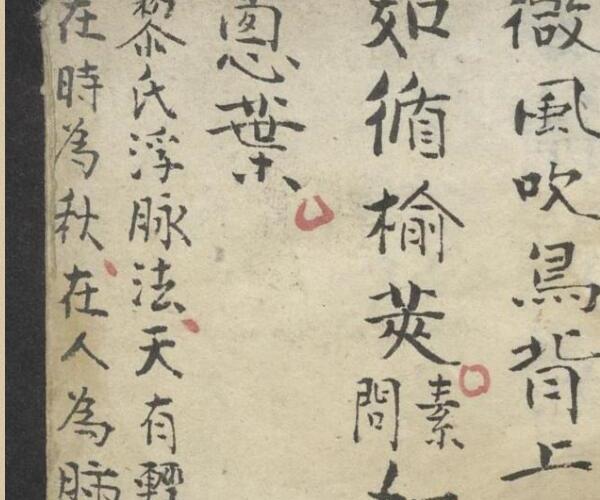 微風吹鳥背上
如循榆莢
素問如
蔥葉
黎氏浮脉法天有輕
在時為秋在人為肺